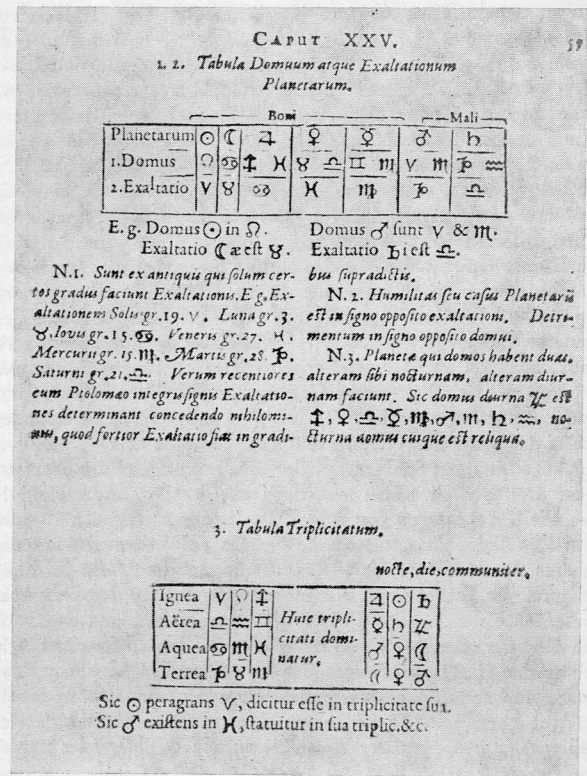 CAPUT XXV.
1. 2. Tabula Domuum atque Exaltationum
Planetarum.
Boni Mali
Planetarum ☉ ☾ ♃ ♀ ☿ ♂ ♄
1.Domus ♌ ♋ ♐ ♓ ♉ ♎ ♊ ♍ ♈ ♏ ♑ ♒
2.Exaltatio ♈ ♉ ♋ ♓ ♍ ♑ ♎
E. g. Domus ☉ in ♌.
Exaltatio ☾æ est ♉.
Domus ♂ sunt ♈ & ♏.
Exaltatio ♄i est ♎.
N.1. Sunt ex antiquis qui solum cer-
tos gradus faciunt Exaltationis, E.g, Ex-
altationem Solis gr. 19. ♈. Lunæ gr. 3.
♉. Iovis gr. 15. ♋. Veneris gr. 27. ♓.
Mercurii gr. 15. ♍. Martis gr. 28. ♑.
Saturni gr. 21. ♎. Verum recentiores
cum Ptolomæo integris signis Exaltatio-
nes determinant concedendo nihilomi-
nus, quod fortior Exaltatio fiat in gradi-
bus supradictis.
N. 2. Humilitas seu casus Planetarũ
est in signo opposito exaltationi. Detri-
mentum in signo opposito domui.
N.3. Planetæ qui domos habent duas,
alteram sibi nocturnam, alteram diur-
nam faciunt. Sic domus diurna ♃ est
♐, ♀, ♎, ☿, ♍, ♂, ♏, ♄, ♒, no-
cturna domus cuique est reliqua.
3. Tabula Triplicitatum.
nocte, die, communiter.
Ignea ♈ ♌ ♐ ♃ ☉ ♄
Aërea ♎ ♒ ♊ Huic tripli- ☿ ♄ ♃
Aquea ♋ ♏ ♓ citati domi- ♂ ♀ ☾
Terrea ♑ ♉ ♍ natur. ☾ ♀ ♂
Sic ☉ peragrans ♈, dicitur esse in triplicitate sua.
Sic ♂ existens in ♓, statuitur in sua triplic. &c.